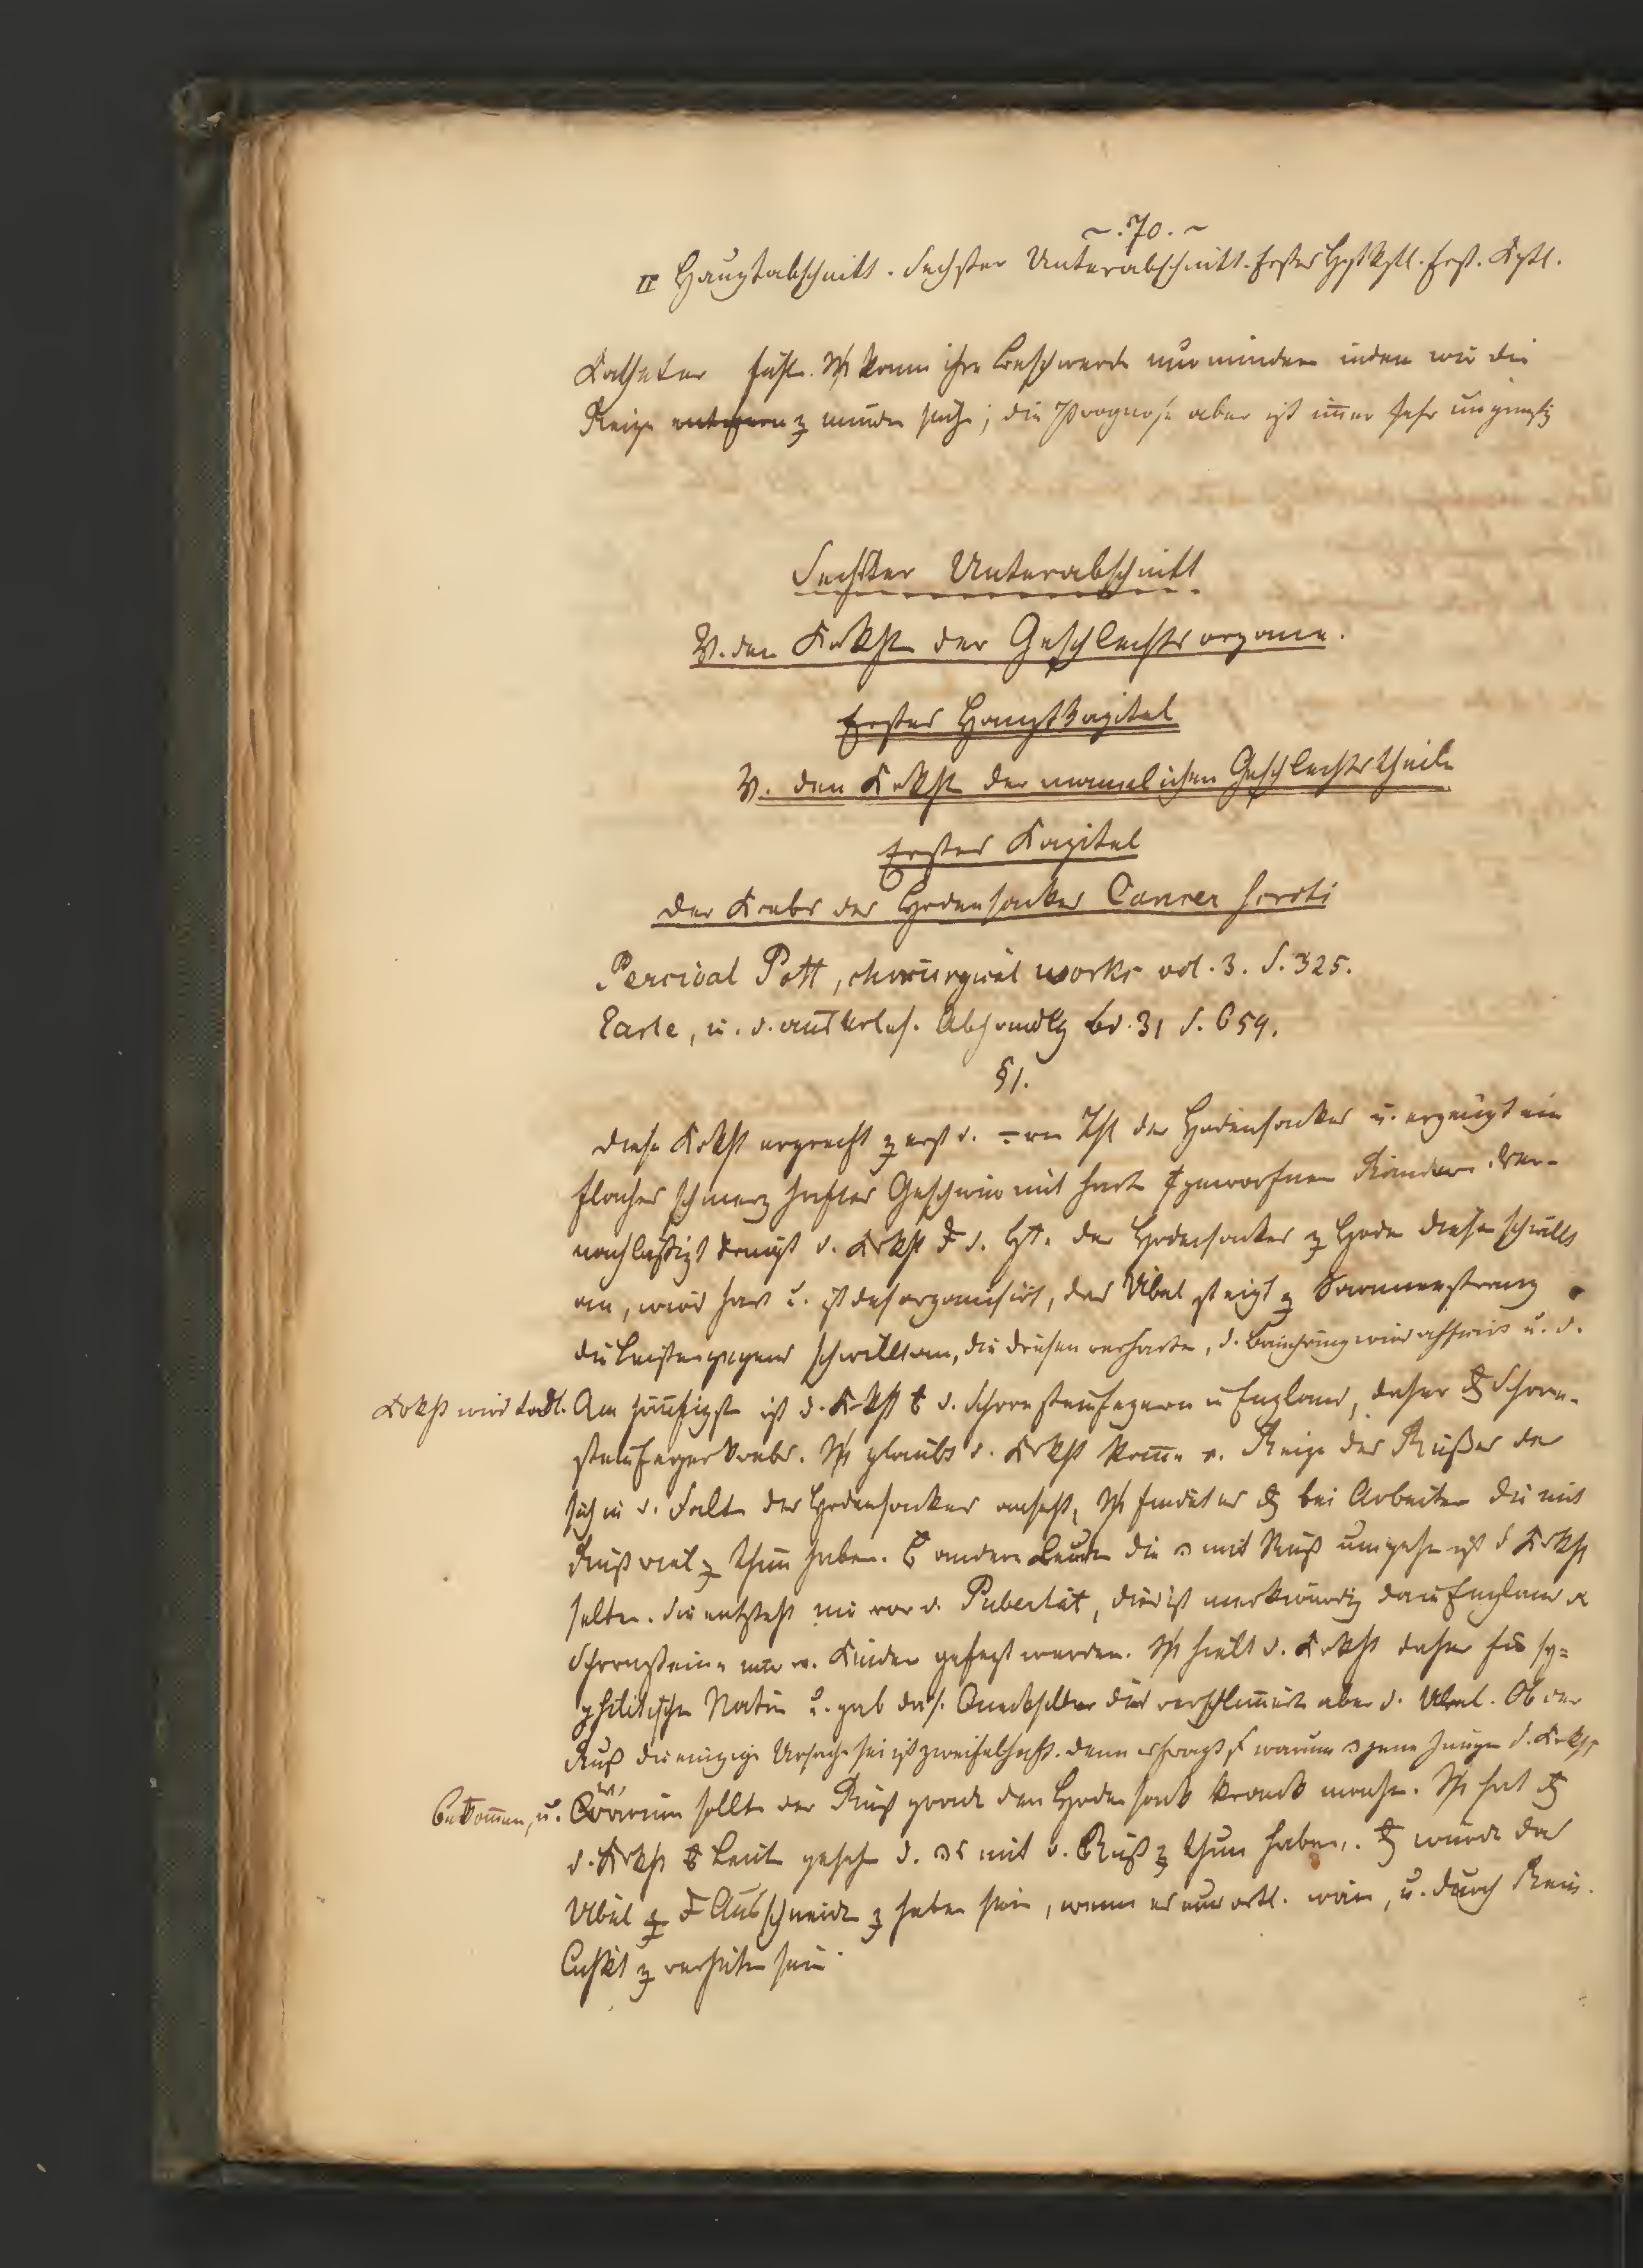 ~ . 70 . ~
II Hauptabschnitt. Sechster Unterabschnitt. Erstes Hptkptl. Erst. Kptl.
Katheter fühlt. kann ihre Beschwerde nur mindern indem wir die
Reize entfernen z mindern suche; die Prognose aber ist im̄er sehr ungünstig
Sechster Unterabschnitt
V. den Krkht der Geschlechtsorgane.
Erstes Hauptkapitel
V. den Krkht der mannlichen Geschlechtstheile
Erstes Kapitel
Der Krebs des Hodensackes Cancer scroti
Percival Pott, chirurgical works vol. 3. S. 325.
Earle, i. d. auserles. Abhandlg bd. 31 S. 659.
§ 1.
Diese Krkht ergreift z erst d. Thl des Hodensackes u. erzeugt ein
flaches schmerzhaftes Geschwür mit hart geworfnen Rändern. Ver-
nachlaßigt dringt d. Krkht d. Ht. des Hodensackes z Hode dieser schwillt
an, wird hart u. ist desorganisirt, das Übel steigt z Saamenstrang
die Leistengegend schwillt an, die Drüsen verharte, d. Bauchring wird afficirt u. d.
Krkht wird todtl. Am häufigste ist d. Krkht d. Schornsteinfegern in England, daher Schorn-
steinfegerkrebs. glaubt d. Krkht kom̄e v. Reize des Rußes der
sich in d. Falte des Hodensackes ansetzt, findet es bei Arbeiter die mit
Ruß viel z thun haben. andern Leuten die mit Ruß umgehe ist d Krkht
selten. Sie entsteht nie vor d. Pubertät, dies ist merkwürdig da in England
Schornsteine nur v. Kinder gefegt werden. hielt d. Krkht daher für sy-
philitischer Natur u. gab das. Quecksilber dies verschlim̄ert aber d. Übel. Ob der
Ruß die einzige Ursache sei ist zweifelhaft. denn es fragt s warum jene Junge d. Krkht
bekom̄en, u. warum sollte der Ruß grade den Hodensack krank machen. hat
d. Krkht Leute gesehe d. mit d. Ruß z thun haben. würde das
Übel Ausschneide z heben sein, wenn es nur örtl. wäre, u. durch Rein-
lichkt z verhüten sein